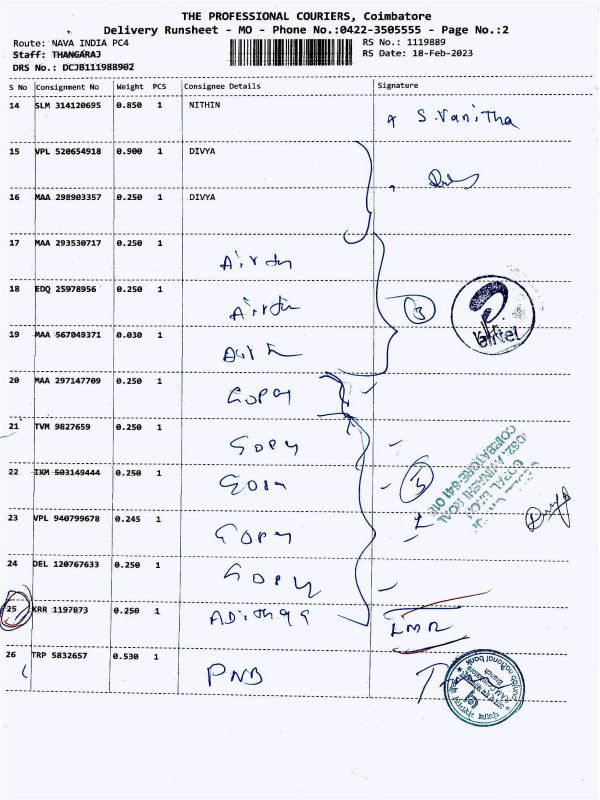 THE PROFESSIONAL COURIERS, Coimbatore
Delivery Runsheet - MO - Phone No.:0422-3505555 - Page No.:2
Route: NAVA INDIA PC4 RS No.: 1119889
Staff: THANGARAJ RS Date: 18-Feb-2023
DRS No.: DCJB111988902
S No Consignment No Weight PCS Consignee Details Signature
14 SLM 314120695 0.850 1 NITHIN S.Vanitha
15 VPL 520654918 0.900 1 DIVYA
16 MAA 298903357 0.250 1 DIVYA
17 MAA 293530717 0.250 1
18 EDQ 25978956 0.250 1
3
airtel
19 MAA 567049371 0.030 1
20 MAA 297147709 0.250 1
21 TVM 9827659 0.250 1
22 IXM 503149444 0.250 1
COIMBATORE-641 018
23 VPL 940799678 0.245 1
24 DEL 120767633 0.250 1
25 KRR 1197873 0.250 1
26 TRP 5832657 0.530 1 PNB